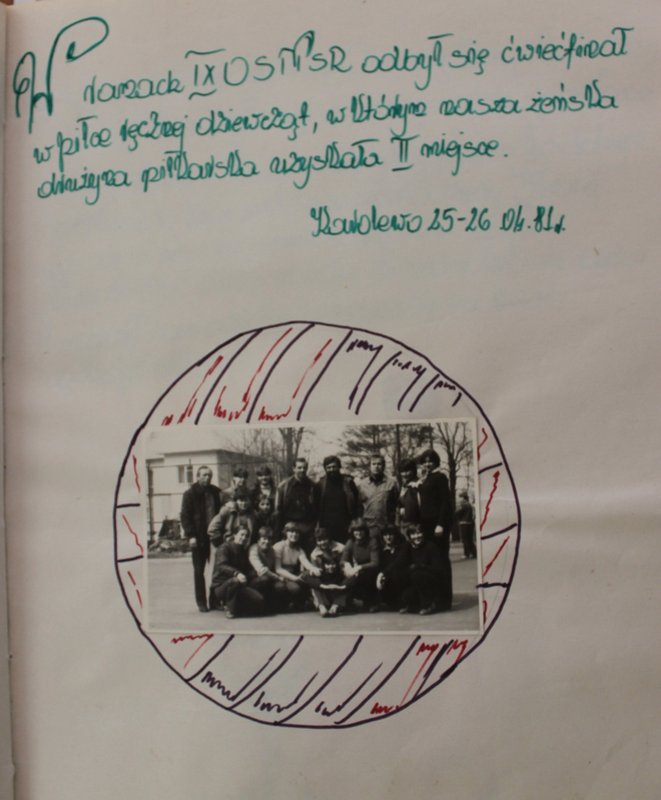 W ramach IX OSMSR odbył się ćwierćfinał
w piłce ręcznej dziewcząt, w którym nasza żeńska
drużyna piłkarska uzyskała II miejsce.
25-26 04.81r.